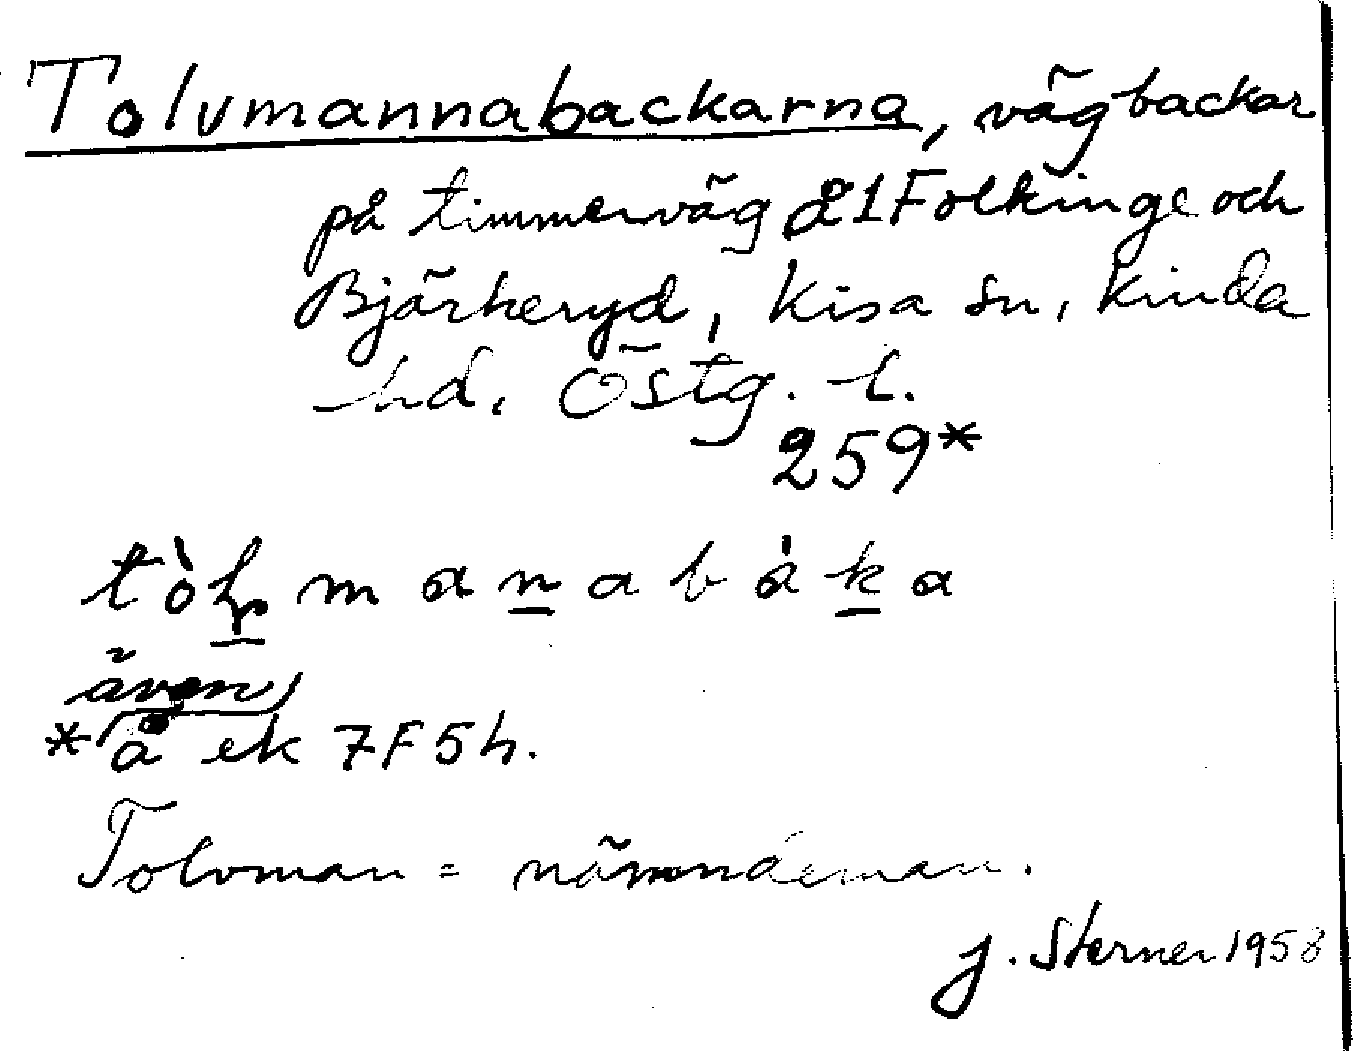 Tolvmannabackarna, vägbackar
på timmerväg å 1 Folkinge och
Bjärkeryd, Kisa sn, Kinda
hd, Östg. l.
259*
manabàka
även
* å ek 7F5h.
Tolvman = nämndeman.
J. Sterner 1958